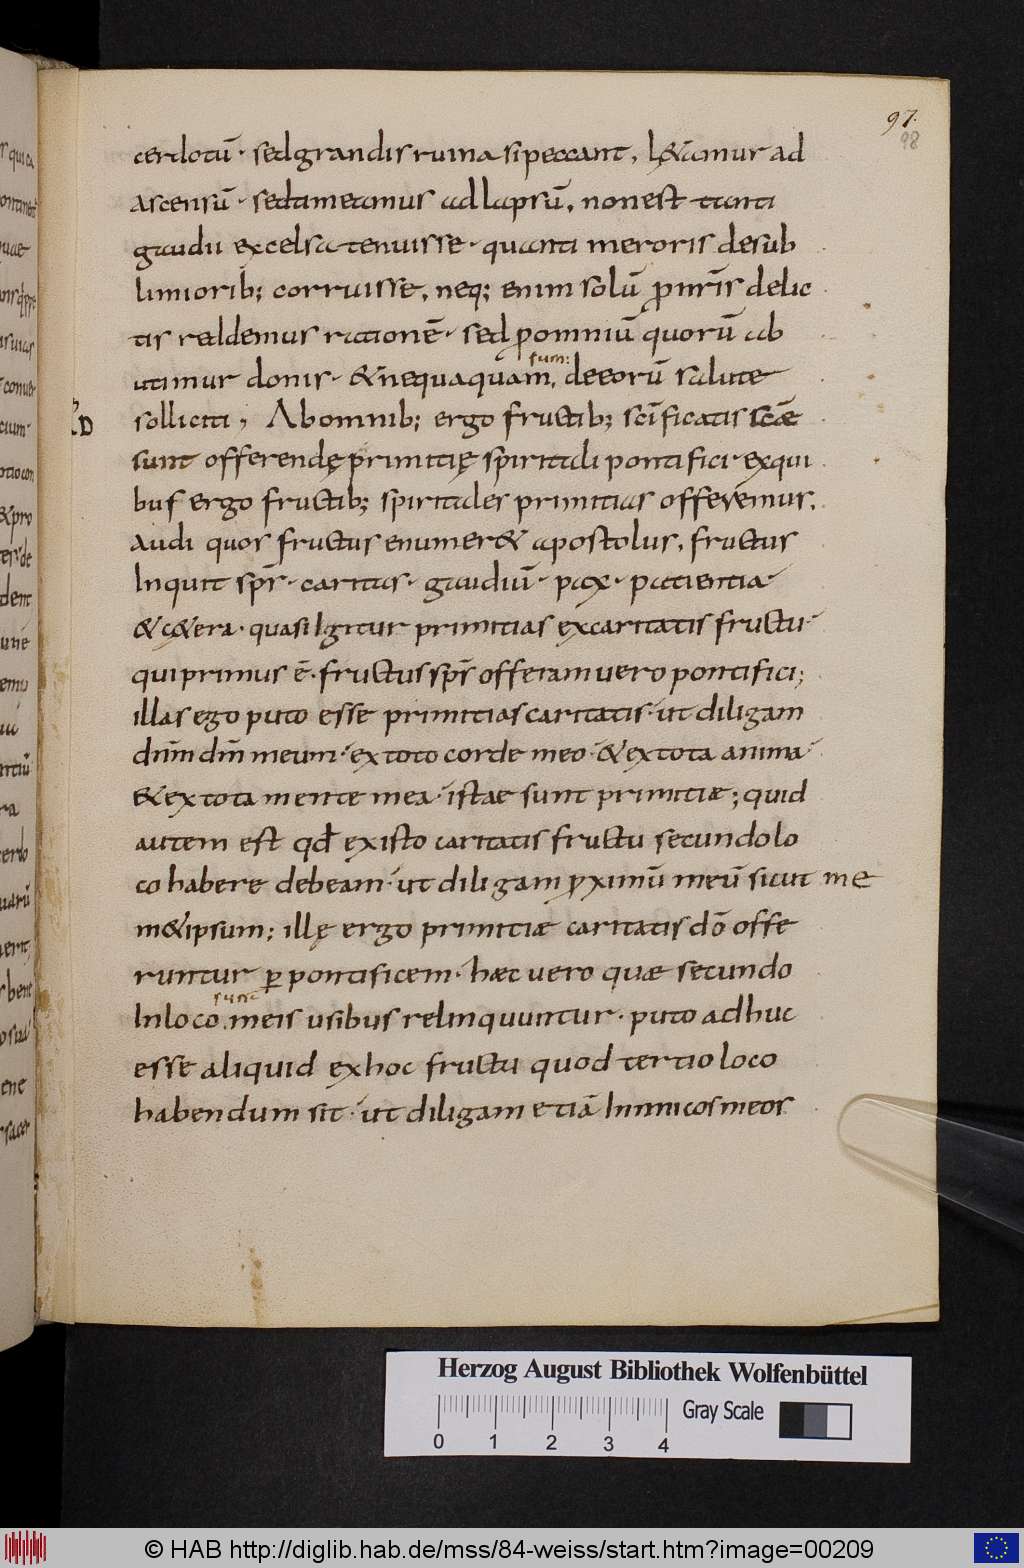 97.
98
cerdotū · sed grandis ruina si peccant, lętamur ad
ascensū · sed timeamus ad lapsū, non est tanti
gaudii excelsa tenuisse · quanti meroris de sub
limiorib; corruisse, neq; enim solū ꝓ nr̄is delic
tis reddemus rationē · sed ꝓ omniū quorū ab
sum:
utimur donis · & nequaquam, de eorū salute
solliciti, Ab omnib; ergo fructib; sc̄ificatis scāe
sunt offerendę primitię spiritali pontifici · ex qui
bus ergo fructib; spiritales primitias offeremus,
Audi quos fructus enumer& apostolus, fructus
Inquit sp̄s · caritas · gaudiū · pax · patientia
& c&era · quasi Igitur primitias ex caritatis fructu
qui primus ē · fructus sp̄s offeram vero pontifici;
illas ego puto esse primitias caritatis · ut diligam
dn̄m dm̄ meum · ex toto corde meo · & ex tota anima
& ex tota mente mea · istae sunt primitiæ; quid
autem est qd̄ ex isto caritatis fructu secundo lo
co habere debeam · ut diligam ꝓximū meū sicut me
m&ipsum; illę ergo primitiæ caritatis dō offe
runtur ꝑ pontificem · hæc vero quæ secundo
sunt
In loco, meis usibus relinquuntur · puto adhuc
esse aliquid ex hoc fructu quod tertio loco
habendum sit · ut diligam etiā Inimicos meos
Herzog August Bibliothek Wolfenbüttel
Gray Scale
0 1 2 3 4
© HAB http://diglib.hab.de/mss/84-weiss/start.htm?image=00209